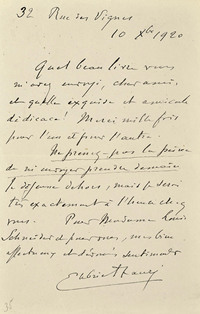 32 Rue des Vignes
10 Xbre 1920
Quel beau livre vous
m'avez envoyé, cher ami,
et quelle exquise et amicale
dédicace! Merci mille fois
pour l'un et pour l'autre.
Ne prenez pas la peine
de m'envoyer prendre demain
je déjeune dehors, mais je serai
très exactement à l'heure chez
vous. Pour Madame Louis
Schneider et pour vous, mes bien
affectueux et dévoués sentiments
Gabriel Fauré